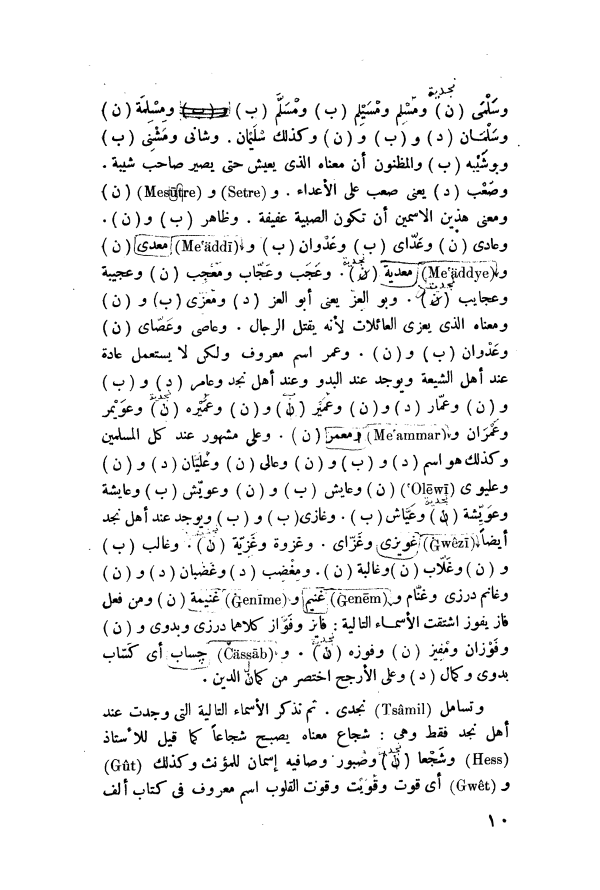 نجدية
وسَلْمَى (ن) ومُسْلِم ومُسَيْلِم (ب) ومُسَلَّم (ب) ومُسْلِمَة (ن)
وسَلْمَان (د) و (ب) و (ن) وكذلك سُلَيْمَان . وشانى ومَشْنِى (ب)
وبوشَيْبه (ب) والمظنون أن معناه الذى يعيش حتى يصير صاحب شيبة .
وصَعْب (د) يعنى صعب على الأعداء . و (Setre) و (Mesûtre) (ن)
ومعنى هذين الاسمين أن تكون الصبية عفيفة . وظاهر (ب) و (ن) .
وعادى (ن) وعَدَّاى (ب) وعَدْوان (ب) و (Me'äddī) معدى (ن)
و (Me'äddye) معدية (ن) نجدية . وعَجَب وعَجَّاب ومَعْجِب (ن) وعجيبة
وعجايب (ن) نجديت . وبو العز يعنى أبو العز (د) ومَعْزى (ب) و (ن)
ومعناه الذى يعزى العائلات لأنه يقتل الرجال . وعاصى وعَصَّاى (ن)
وعَدْوان (ب) و (ن) . وعمر اسم معروف ولكن لا يستعمل عادة
عند أهل الشيعة ويوجد عند البدو وعند أهل نجد وعامر (د) و (ب)
و (ن) وعَمَّار (د) و (ن) وعمَيْر (ن) و (ن) وعُمَيْره (ن) نجدية وعوَيْمر
وعَمْرَان و (Me'ammar) معمر (ن) . وعلى مشهور عند كل المسلمين
وكذلك هو اسم (د) و (ب) و (ن) وعالى (ن) وعْلَيَّان (د) و (ن)
وعليوى (Olēwī‘) (ن) وعايش (ب) و (ن) وعويّش (ب) وعايشة
وعوَيّشة (ن) نجدية وعَيَّاش (ب) . وغازى (ب) و (ب) ويوجد عند أهل نجد
أيضاً (Ġwêzī) غويزى وغَزَّاى . وغزوة وغَزيّة (ن) نجدية . وغالب (ب)
و (ن) وغَلَّاب (ن) وغالبة (ن) . ومغْضب (د) وغَضْبان (د) و (ن)
وغانم درزى وغَنَّام و (Ġenēm) غنيم و (Ġenīme) غنيمة (ن) ومن فعل
فاز يفوز اشتقت الأسماء التالية : فائز وفَوَّاز كلاهما درزى وبدوى و (ن)
وفَوْزان ومْفِيز (ن) وفوزه (ن) نجدية . و (Čässāb) چساب أى كَسَّاب
بدوى وكمال (د) وعلى الأرجح اختصر من كمال الدين .
وتسامل (Tsâmil) نجدى . ثم نذكر الأسماء التالية التى وجدت عند
أهل نجد فقط وهى : شجاع معناه يصبح شجاعاً كما قيل للأستاذ
(Hess) وشَجْعا (ن) نجدية وصْبور وصافيه إسمان للمؤنث وكذلك (Gût)
و (Gwêt) أى قوت وقْوَيْت وقوت القلوب اسم معروف فى كتاب ألف
١٠